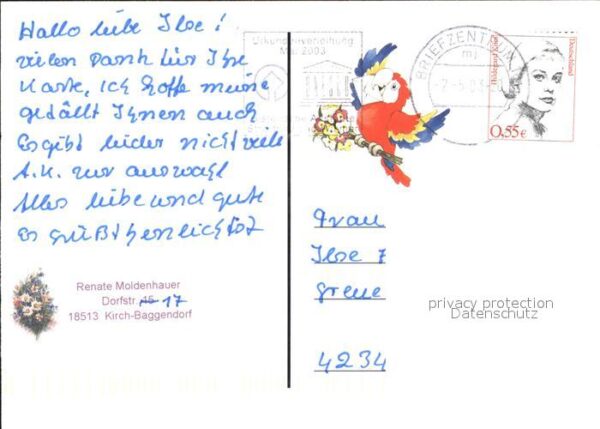 Hallo liebe Ilse!
vielen Dank für Ihre
Karte, ich hoffe meine
gefällt Ihnen auch
Es gibt leider nicht viele
A.K. zur auswahl
Alles liebe und gute
Es grüßt herzlichst
Renate Moldenhauer
Dorfstr. 15 17
18513 Kirch-Baggendorf
Urkundenverleihung
Mai 2003
BRIEFZENTRUM
mj
-2.-5.03
Hildegard Knef
Deutschland
0,55€
Frau
Ilse
Greue
4234
privacy protection
Datenschutz